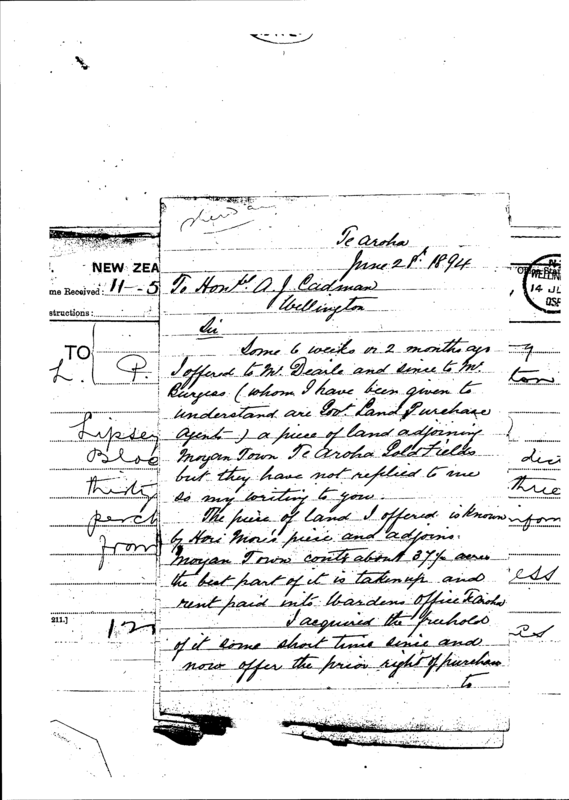 Te Aroha
June 21st. 1894
To Honble A. J. Cadman
Wellington
Sir
Some 6 weeks or 2 months ago
I offered to Mr. Dearle and since to Mr.
Burgess (whom I have been given to
understand are Govt Land Purchase
Agents) a piece of land adjoining
Moyan Town Te Aroha Goldfields
but they have not replied to me
so my writing to you.
The piece of land I offered is known
by Hori More's piece and adjoins
Moyan Town conts about 37½ acres
the best part of it is taken up and
rent paid into Wardens Office Te Aroha
I acquired the freehold
of it some short time since and
now offer the prior right of purchase
to
NEW ZEA
me Received: 11-5
structions:
TO
L. P.
Lipsey
Bloc
thirty
perch
from
211.]
12
WELLIN
14 JU
ton
dis
three
inform
ess